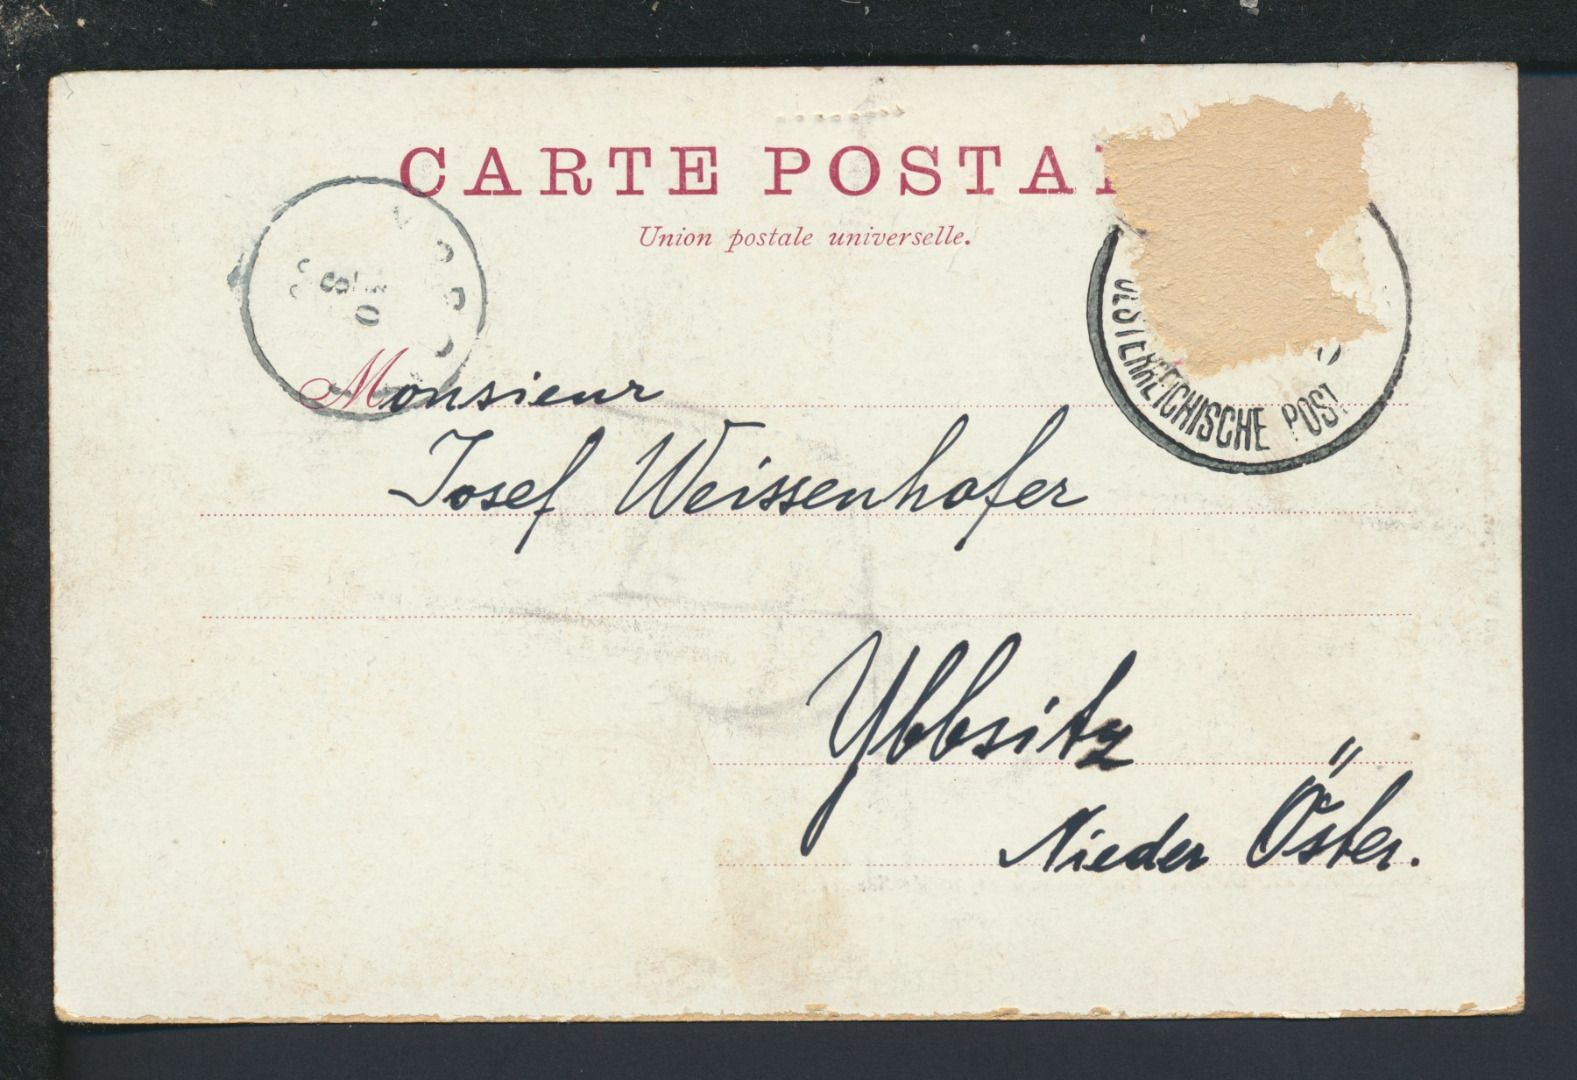 CARTE POSTA
Union postale universelle.
OESTERREICHISCHE POST
Monsieur
Josef Weissenhofer
Ybbsitz
Nieder Öster.